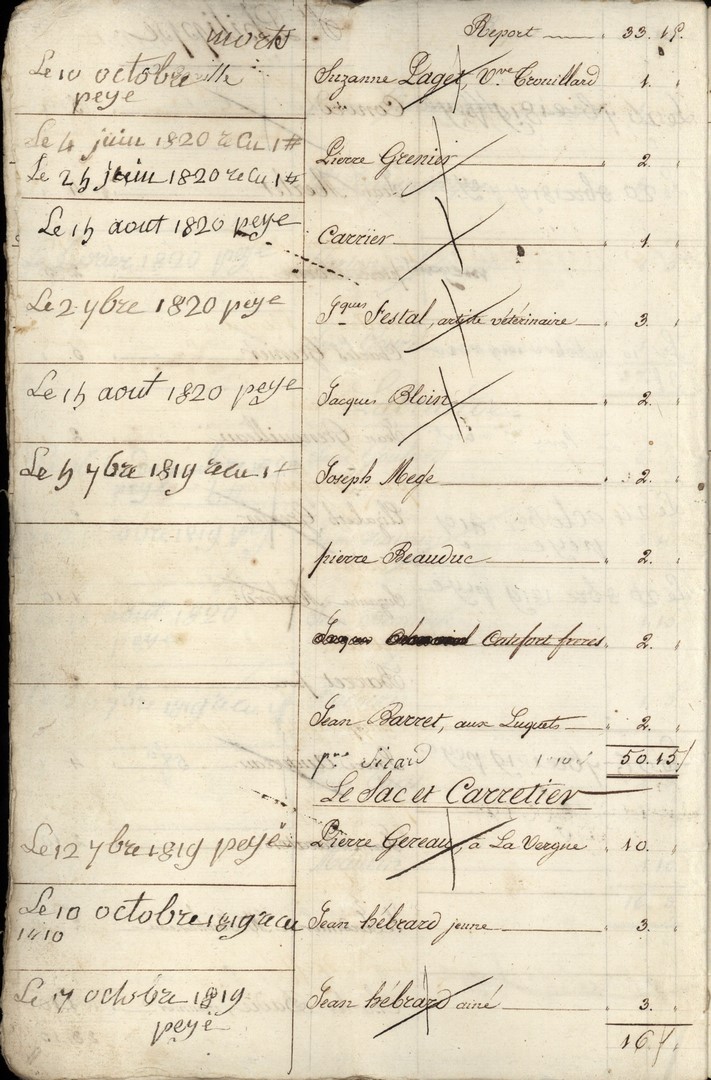 morts Report 33. 15.
Le 10 octobre Suzanne Paget, Vve Trouillard 1.
peye
Le 4 juin 1820 recu 1#
Le 25 juin 1820 recu 1# Pierre Grenier 2.
Le 15 aout 1820 peye Carrier 1.
Le 2 7bre 1820 peye Jques Festal, artiste vétérinaire 3.
Le 15 août 1820 peye Jacques Bloin 2.
Le 5 7bre 1819 recu 1# Joseph Mege 2.
pierre Beauduc 2.
Catefort freres 2.
Jean Barret, aux Luquets 2.
pre Sicard 50. 15
Le Sac et Carretier
Le 12 7bre 1819 peyë Pierre Gereau, à La Vergne 10.
Le 10 octobre 1819 recu Jean hébrard jeune 3.
1#10
Le 17 octobre 1819 Jean hébrard ainé 3.
peyë
16